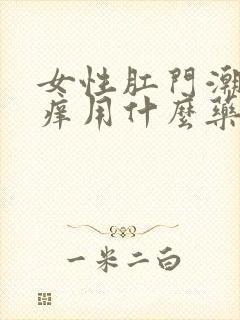 女性肛門潮
痒用什麼藥
一米二白